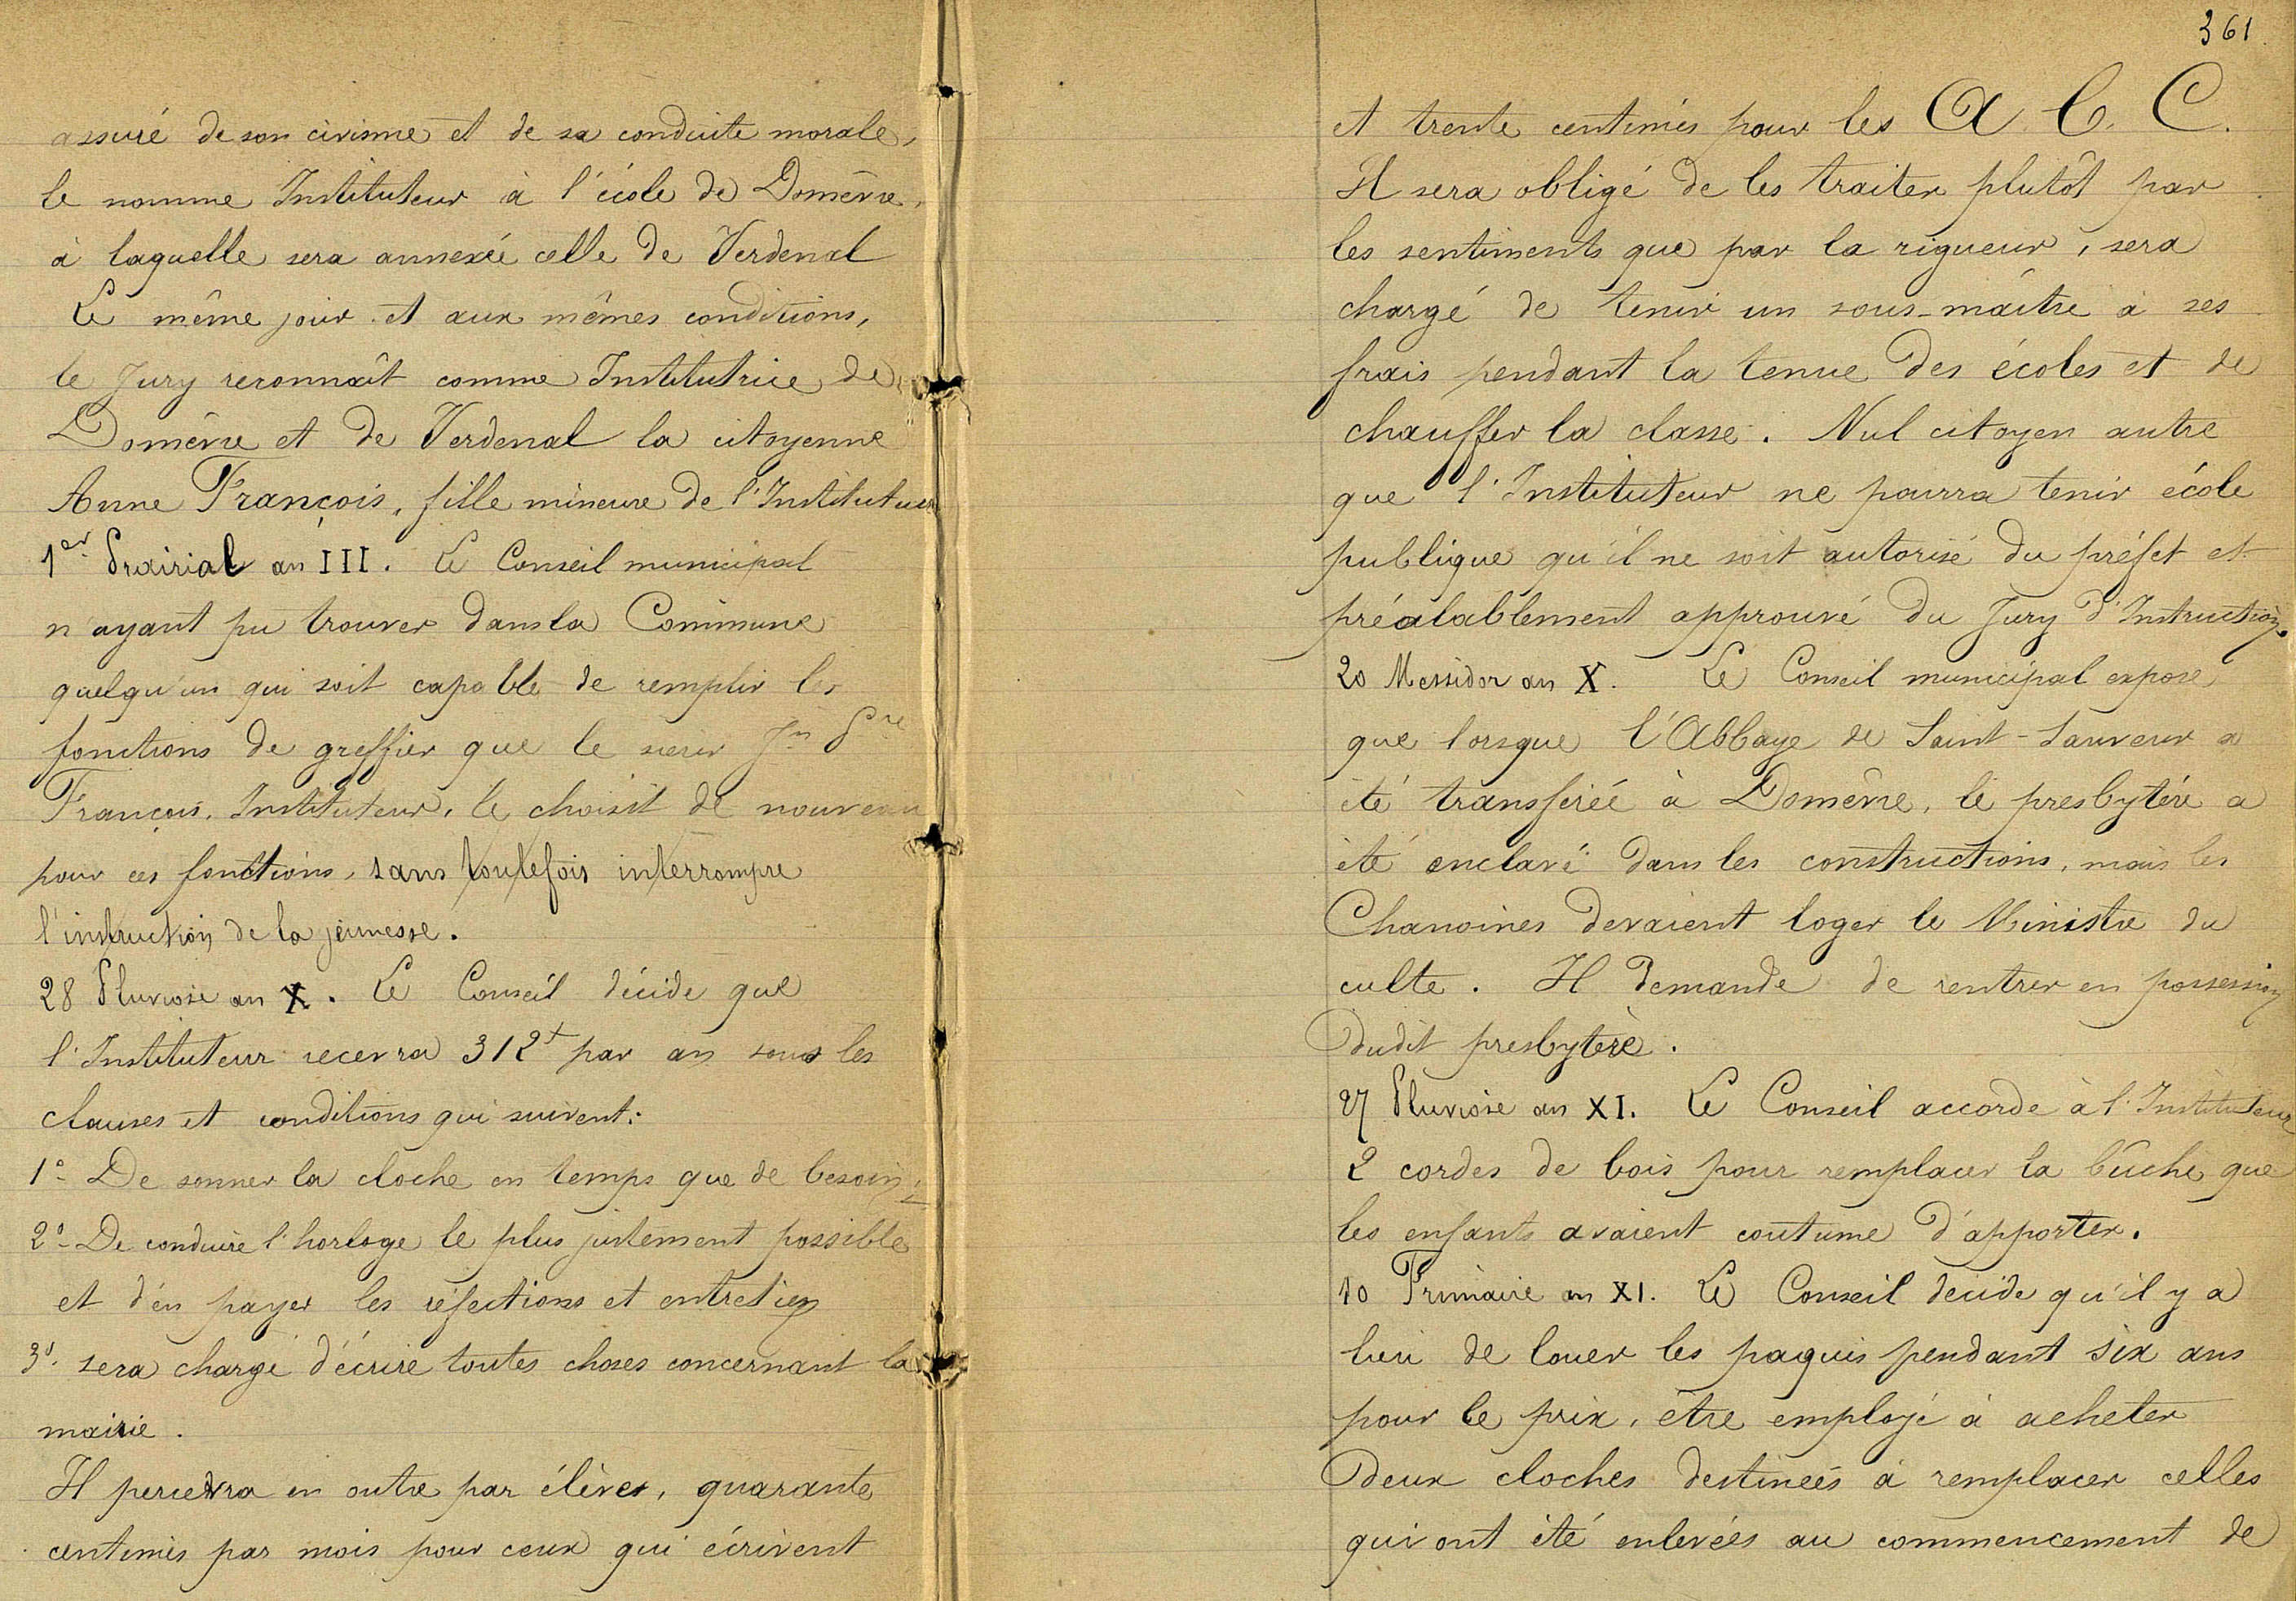 assuré de son civisme et de sa conduite morale,
le nomme Instituteur à l'école de Domêvre,
à laquelle sera annexée celle de Verdenal
Le même jour et aux mêmes conditions,
le Jury reconnaît comme Institutrice de
Domêvre et de Verdenal la citoyenne
Anne François, fille mineure de l'Instituteur
1er Prairial an III. Le Conseil municipal
n'ayant pu trouver dans la Commune
quelqu'un qui soit capable de remplir les
fonctions de greffier que le sieur Jn Pre
François, Instituteur, le choisit de nouveau
pour ces fonctions, sans toutefois interrompre
l'instruction de la jeunesse.
28 Pluviose an X. Le Conseil décide que
l'Instituteur recevra 312t par an sous les
clauses et conditions qui suivent:
1o- De sonner la cloche en temps que de besoin;
2o- De conduire l'horloge le plus justement possible
et d'en payer les réfections et entretien
3o. sera chargé d'écrire toutes choses concernant la
mairie.
Il percevra en outre par élèves, quarante
centimes par mois pour ceux qui écrivent
361
et trente centimes pour les A. B. C.
Il sera obligé de les traiter plutôt par
les sentiments que par la rigueur, sera
chargé de tenir un sous-maître à ses
frais pendant la tenue des écoles et de
chauffer la classe. Nul citoyen autre
que l'Instituteur ne pourra tenir école
publique qu'il ne soit autorisé du préfet et
préalablement approuvé du Jury d'Instruction.
20 Messidor an X. Le Conseil municipal expose
que lorsque l'Abbaye de Saint-Sauveur a
été transférée à Domêvre, le presbytère a
été enclavé dans les constructions, mais les
Chanoines devaient loger le Ministre du
culte. Il demande de rentrer en possession
dudit presbytère.
27 Pluviose an XI. Le Conseil accorde à l'Instituteur
2 cordes de bois pour remplacer la bûche que
les enfants avaient coutume d'apporter.
10 Frimaire an XI. Le Conseil décide qu'il y a
lieu de louer les paquis pendant six ans
pour le prix, être employé à acheter
deux cloches destinées à remplacer celles
qui ont été enlevées au commencement de